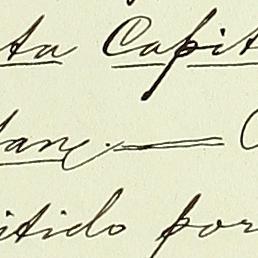 ta Capit
tan.
itido por